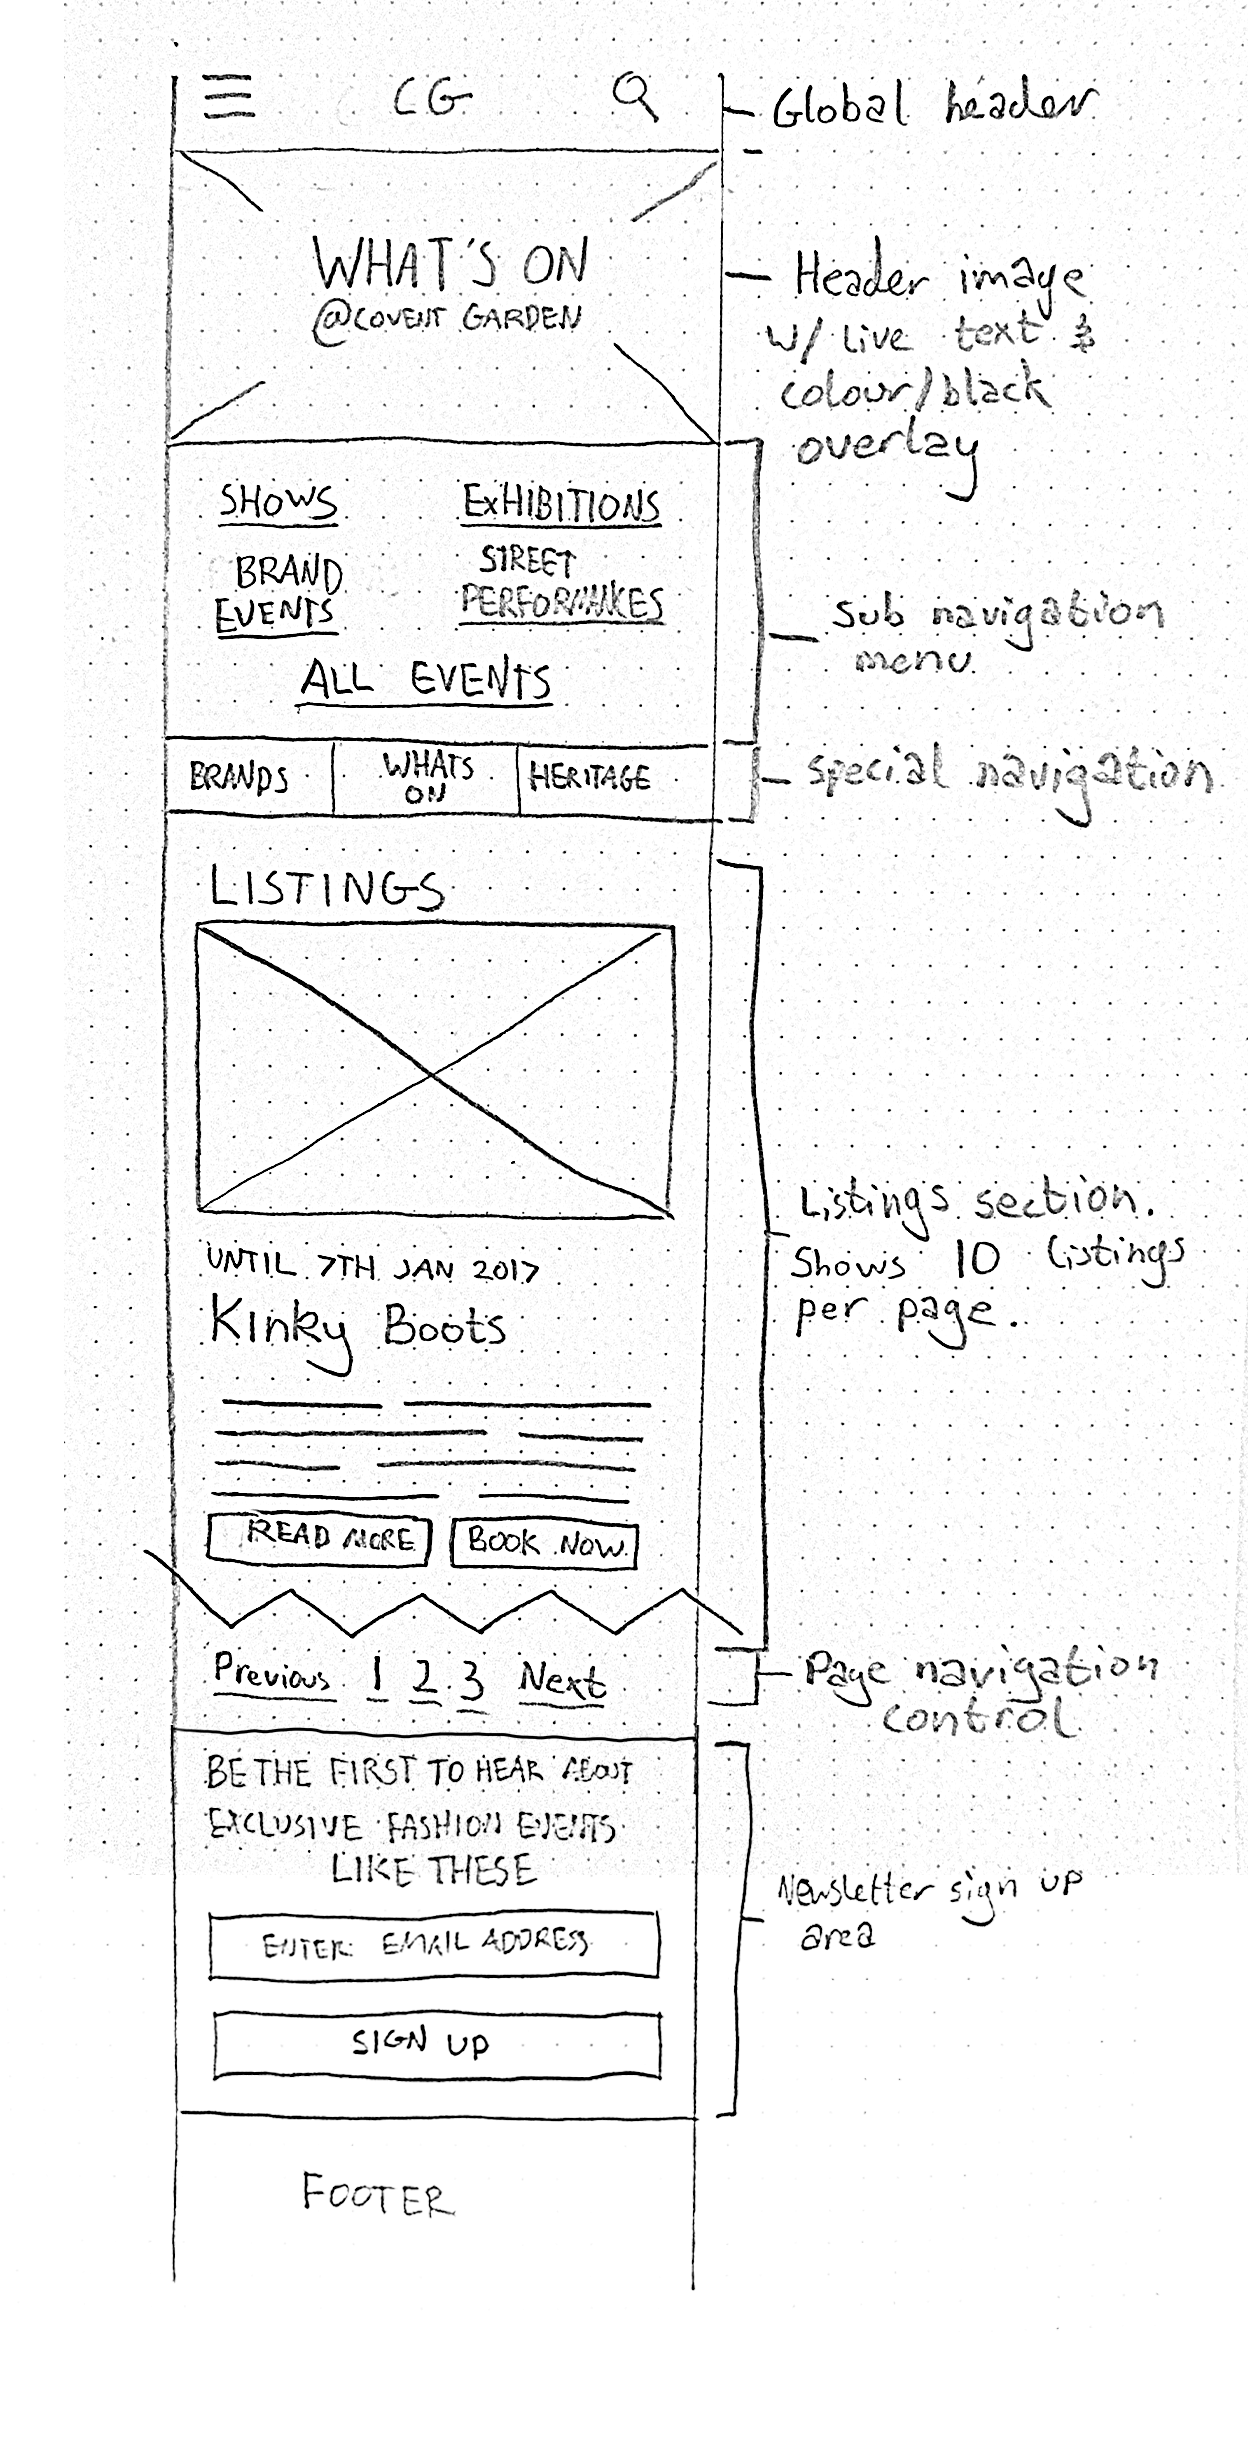 CG
Global header
WHAT'S ON
@COVENT GARDEN
Header image
w/ live text &
colour/black
overlay
SHOWS
EXHIBITIONS
BRAND
EVENTS
STREET
PERFORMANCES
ALL EVENTS
Sub navigation
menu
BRANDS
WHATS
ON
HERITAGE
special navigation
LISTINGS
Listings section.
Shows 10 listings
per page.
UNTIL 7TH JAN 2017
Kinky Boots
READ MORE
BOOK NOW
Previous 1 2 3 Next
Page navigation
control
BE THE FIRST TO HEAR ABOUT
EXCLUSIVE FASHION EVENTS
LIKE THESE
Newsletter sign up
area
ENTER EMAIL ADDRESS
SIGN UP
FOOTER